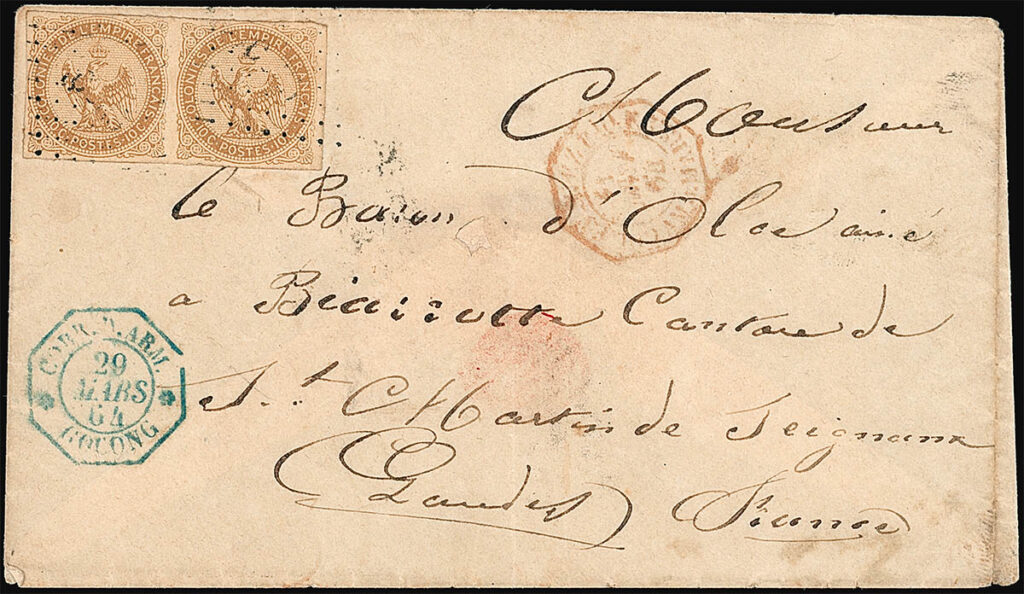 COLONIES DE L'EMPIRE FRANÇAIS
10 C. POSTES 10 C.
COLONIES DE L'EMPIRE FRANÇAIS
10 C. POSTES 10 C.
Monsieur
le Baron d'Olce ainé
a Biarrotte Canton de
St. Martin de Seignanx
(Landes) France
CORR. D. ARM.
29
MARS
64
GOCONG